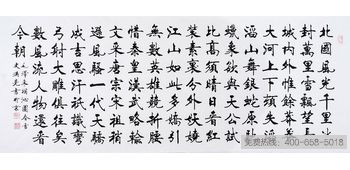 北國風光千里冰
封萬里雪飄望長
城内外惟餘莽莽
大河上下頓失滔
滔山舞銀蛇原馳
蠟象欲與天公試
比高須晴日看紅
裝素裹分外妖嬈
江山如此多嬌引
無數英雄競折腰
惜秦皇漢武略輸
文采唐宗宋祖稍
遜風騷一代天驕
成吉思汗祇識彎
弓射大雕俱往矣
數風流人物還看
今朝
毛澤東詞沁園春雪
免费热线：400-658-5018